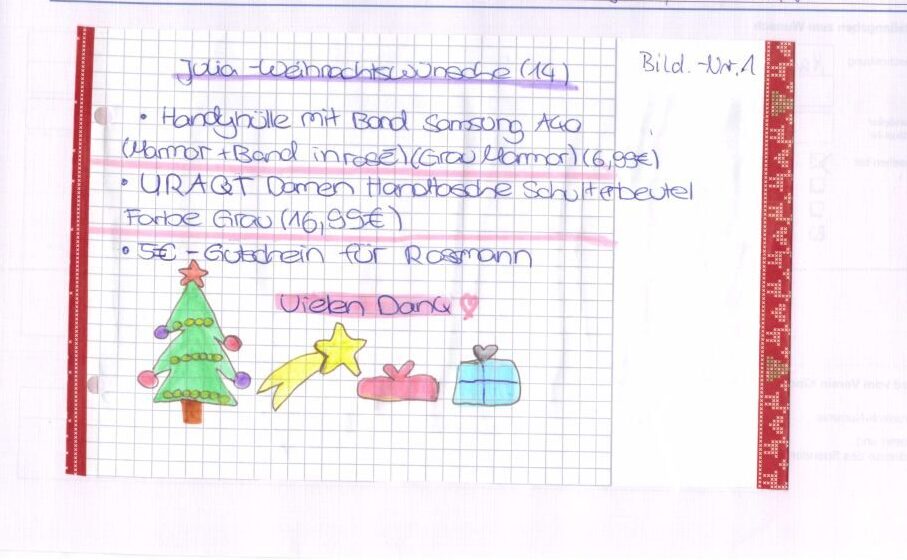 Julia -Weihnachtswünsche (14)
Bild.-Nr.1
• Handyhülle mit Band Samsung A40
(Marmor + Band in rosé) (Grau Marmor) (6,99€)
• URAQT Damen Handtasche Schulterbeutel
Farbe Grau (16,99€)
• 5€ - Gutschein für Rossmann
Vielen Dank